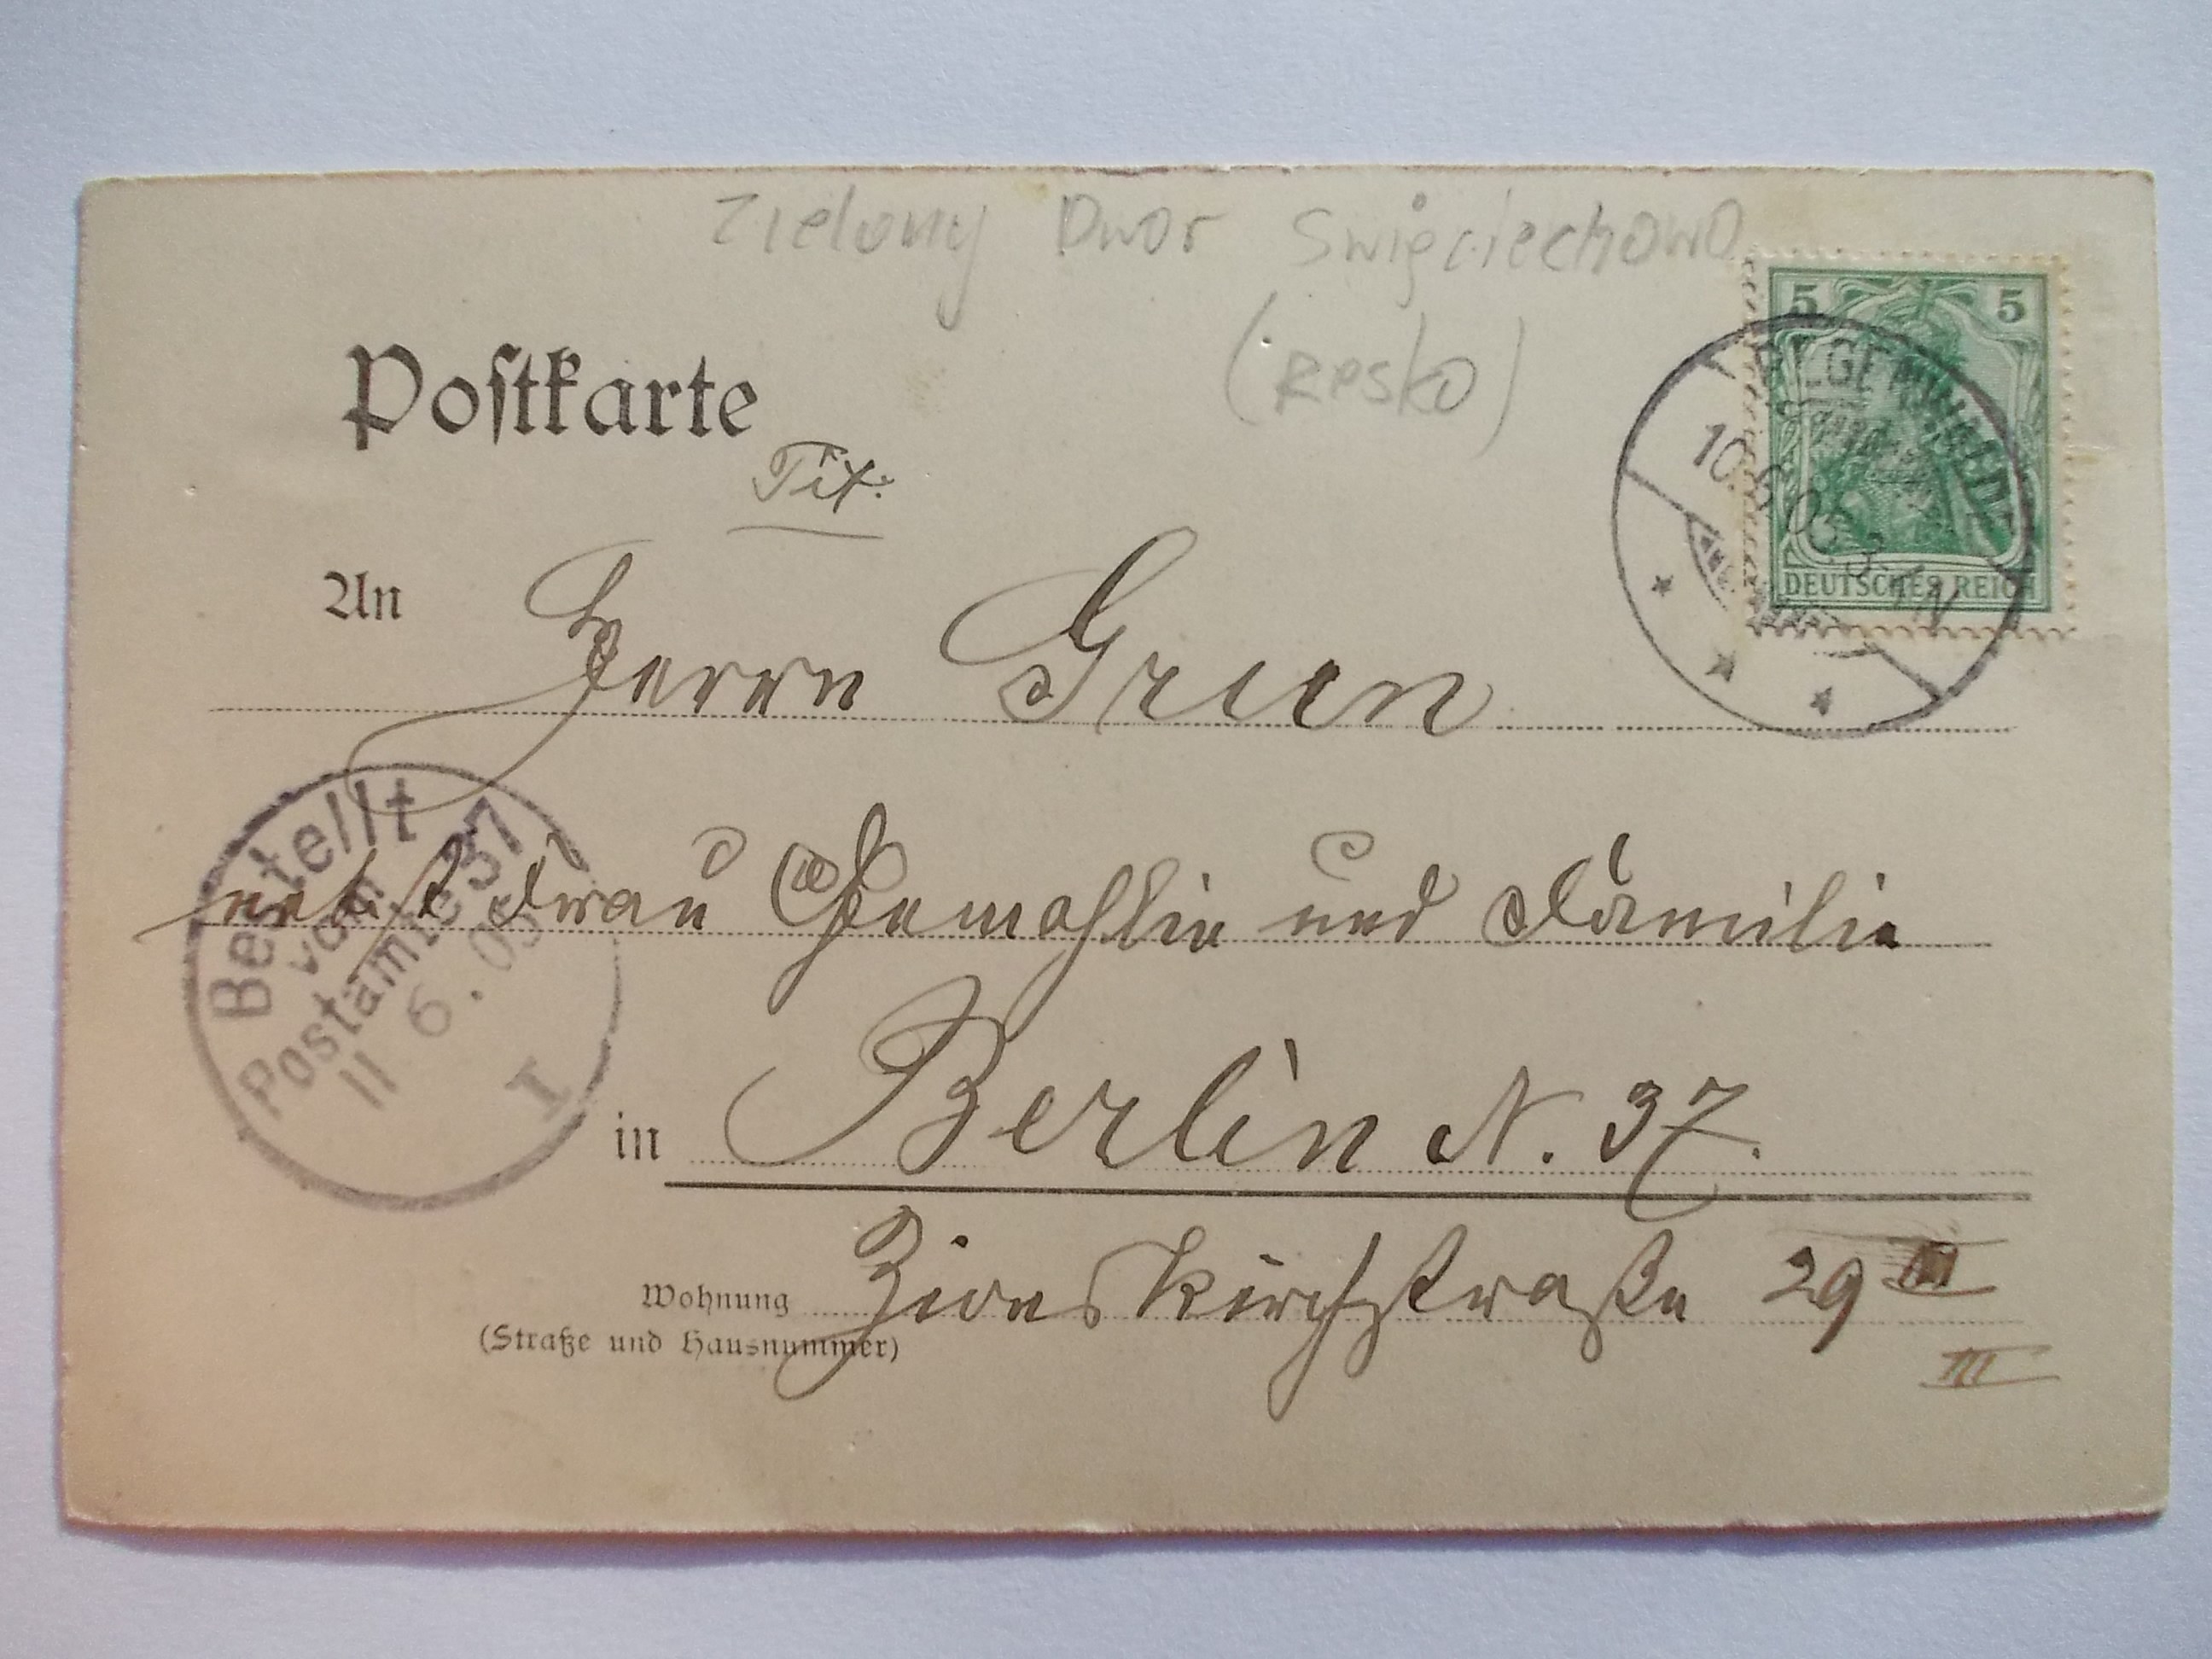 Zielony Dwór Święciechowo
(Resko)
5 5
DEUTSCHES REICH
10.6.03.
Postkarte
Tit:
An Herrn Grün
nebst Frau Gemahlin und Familie
Bestellt
vom
Postamte 37
11 6. 03
I
in Berlin N. 37.
Wohnung Zionskirchstraße 29
(Straße und Hausnummer)
III